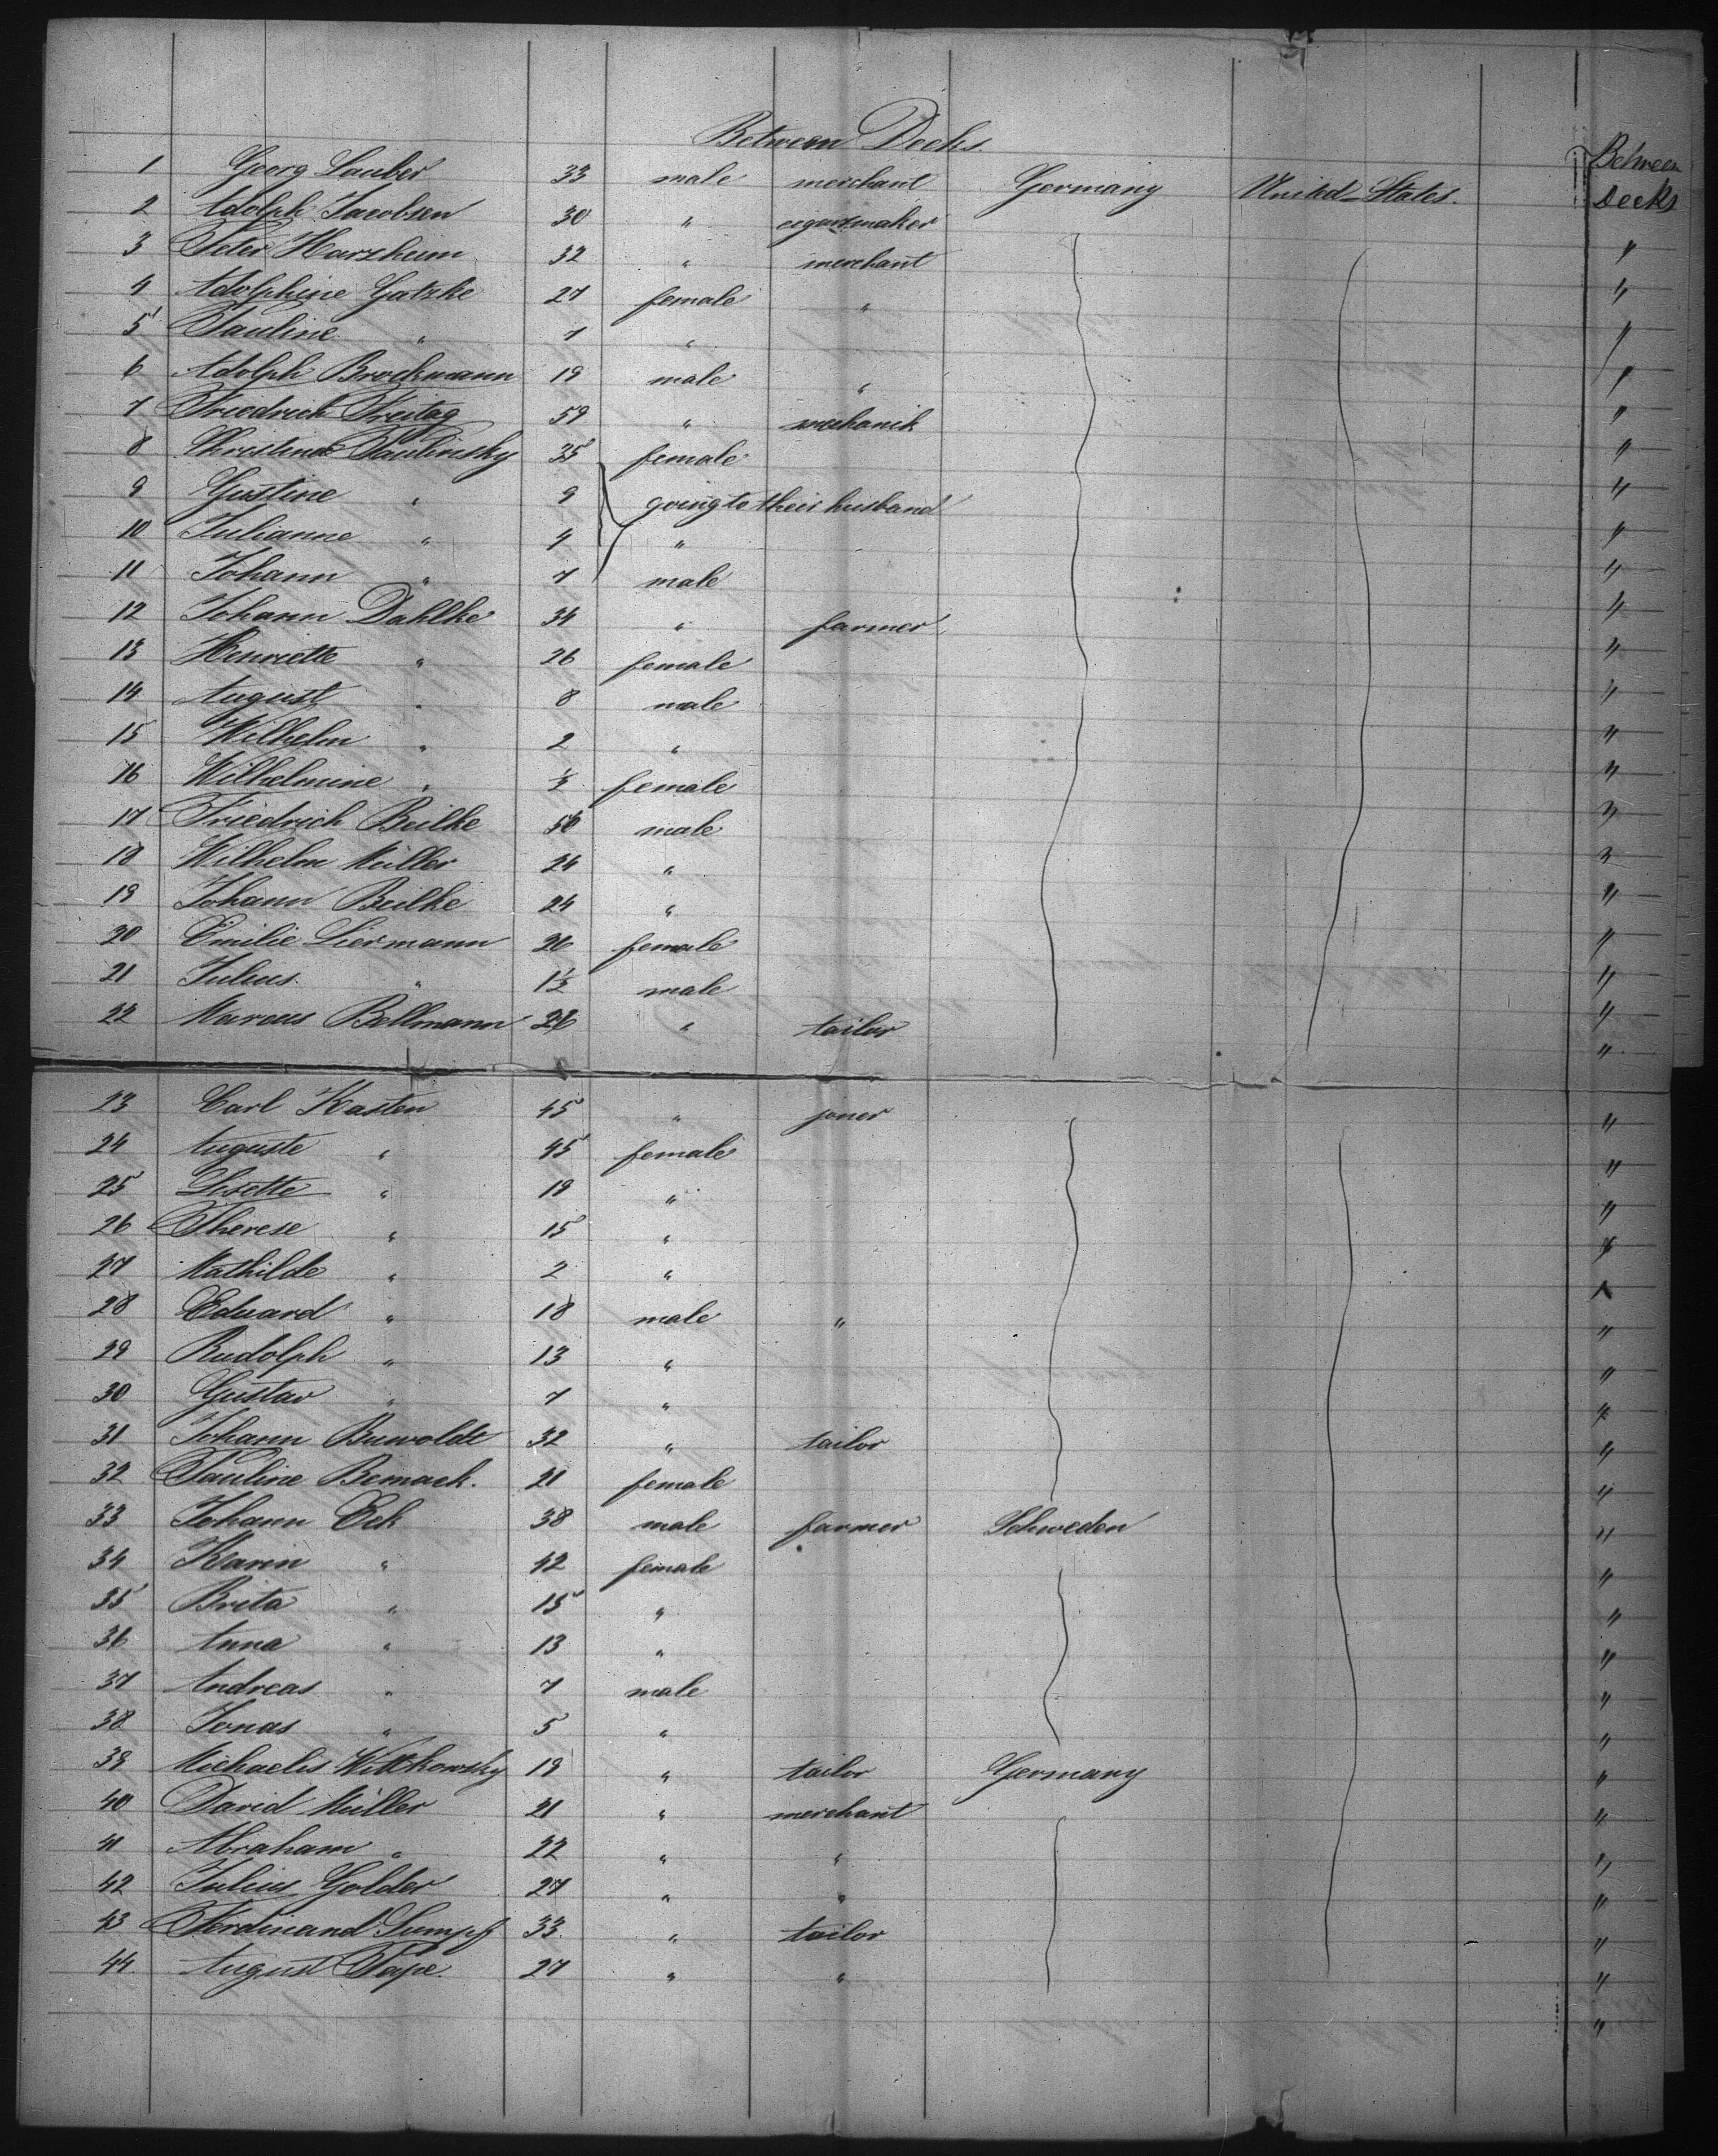 Between Decks.
1 Georg Lauber 33 male merchant Germany United States. Between Decks
2 Adolph Jacobsen 30 " cigarmaker "
3 Peter Harzheim 32 " merchant "
4 Adolphine Gatzke 27 female " "
5 Pauline " 7 " "
6 Adolph Brockmann 19 male " "
7 Friedrich Freitag 59 " mechanik "
8 Christine Paulinsky 35 female "
9 Justine " 9 going to their husband "
10 Julianne " 4 " "
11 Johann " 7 male "
12 Johann Dahlke 34 " farmer "
13 Henriette " 26 female "
14 August " 8 male "
15 Wilhelm " 2 " "
16 Wilhelmine " ½ female "
17 Friedrich Beilke 50 male "
18 Wilhelm Müller 24 " "
19 Johann Beilke 24 " "
20 Emilie Liermann 26 female "
21 Julius " 1½ male "
22 Marcus Bellmann 28 " tailor "
23 Carl Kasten 45 " joner "
24 Auguste " 45 female "
25 Lisette " 19 " "
26 Therese " 15 " "
27 Mathilde " 2 " "
28 Eduard " 18 male " "
29 Rudolph " 13 " "
30 Gustav " 7 " "
31 Johann Buwoldt 32 " tailor "
32 Pauline Bernack. 21 female "
33 Johann Eek 38 male farmer Schweden "
34 Karin " 42 female "
35 Brita " 15 " "
36 Anna " 13 " "
37 Andreas " 7 male "
38 Jonas " 5 " "
39 Michaelis Wittkowsky 19 " tailor Germany "
40 David Müller 21 " merchant "
41 Abraham " 22 " " "
42 Julius Golder 27 " " "
43 Ferdinand Sumpf 33 " tailor "
44 August Pape. 27 " " "